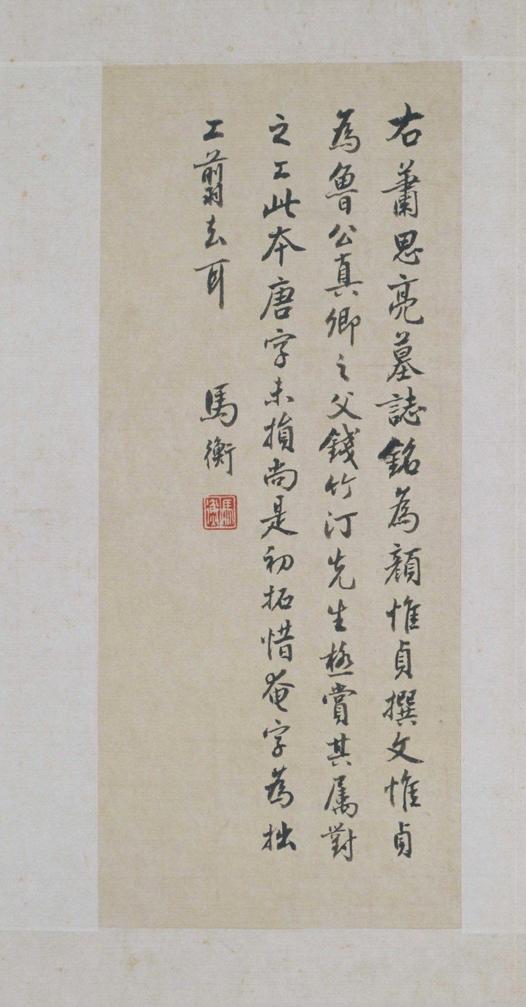 右蕭思亮墓誌銘為顏惟貞撰文惟貞
為魯公真卿之父錢竹汀先生極賞其属對
之工此本唐字未損尚是初拓惜奄字為拙
工翦去耳
馬衡
馬衡